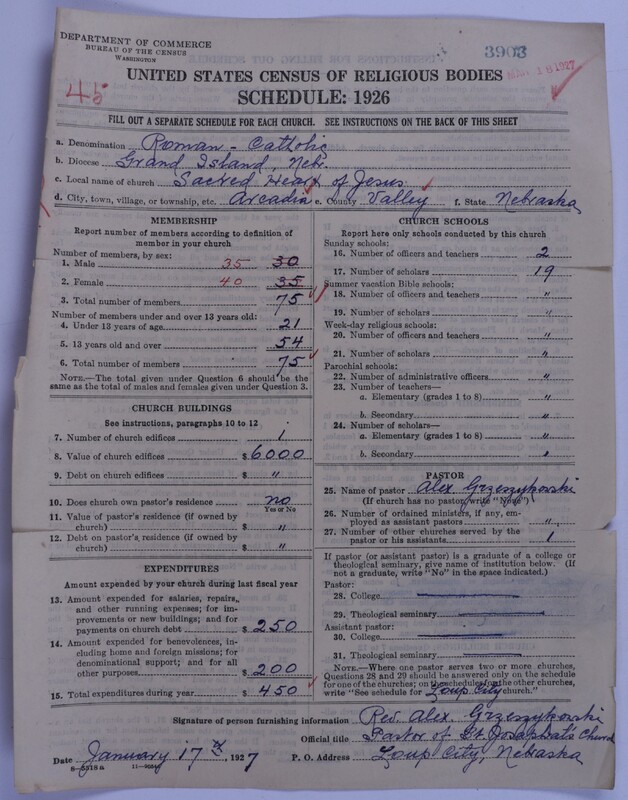 DEPARTMENT OF COMMERCE
BUREAU OF THE CENSUS
WASHINGTON
3903
MAY 18 1927
45
UNITED STATES CENSUS OF RELIGIOUS BODIES
SCHEDULE: 1926
FILL OUT A SEPARATE SCHEDULE FOR EACH CHURCH. SEE INSTRUCTIONS ON THE BACK OF THIS SHEET
a. Denomination Roman - Catholic
b. Diocese Grand Island, Nebr.
c. Local name of church Sacred Heart of Jesus
d. City, town, village, or township, etc. Arcadia e. County Valley f. State Nebraska
MEMBERSHIP
Report number of members according to definition of member in your church
Number of members, by sex:
1. Male 35 30
2. Female 40 35
3. Total number of members 75
Number of members under and over 13 years old:
4. Under 13 years of age 21
5. 13 years old and over 54
6. Total number of members 75
NOTE.—The total given under Question 6 should be the same as the total of males and females given under Question 3.
CHURCH BUILDINGS
See instructions, paragraphs 10 to 12
7. Number of church edifices 1
8. Value of church edifices $ 6000
9. Debt on church edifices $ "
10. Does church own pastor's residence no
Yes or No
11. Value of pastor's residence (if owned by church) $ "
12. Debt on pastor's residence (if owned by church) $ "
EXPENDITURES
Amount expended by your church during last fiscal year
13. Amount expended for salaries, repairs, and other running expenses; for improvements or new buildings; and for payments on church debt $ 250
14. Amount expended for benevolences, including home and foreign missions; for denominational support; and for all other purposes $ 200
15. Total expenditures during year $ 450
CHURCH SCHOOLS
Report here only schools conducted by this church
Sunday schools:
16. Number of officers and teachers 2
17. Number of scholars 19
Summer vacation Bible schools:
18. Number of officers and teachers "
19. Number of scholars "
Week-day religious schools:
20. Number of officers and teachers "
21. Number of scholars "
Parochial schools:
22. Number of administrative officers "
23. Number of teachers—
a. Elementary (grades 1 to 8) "
b. Secondary "
24. Number of scholars—
a. Elementary (grades 1 to 8) "
b. Secondary "
PASTOR
25. Name of pastor Alex Grzeszykowski
(If church has no pastor, write "None")
26. Number of ordained ministers, if any, employed as assistant pastors "
27. Number of other churches served by the pastor or his assistants 1
If pastor (or assistant pastor) is a graduate of a college or theological seminary, give name of institution below. (If not a graduate, write "No" in the space indicated.)
Pastor:
28. College
29. Theological seminary
Assistant pastor:
30. College
31. Theological seminary
NOTE.—Where one pastor serves two or more churches, Questions 28 and 29 should be answered only on the schedule for one of the churches; on the schedules for the other churches, write "See schedule for Loup City church."
Signature of person furnishing information Rev. Alex. Grzeszykowski
Official title Pastor of St Josaphat's Church
Date January 17th, 1927 P. O. Address Loup City, Nebraska
8—5318a